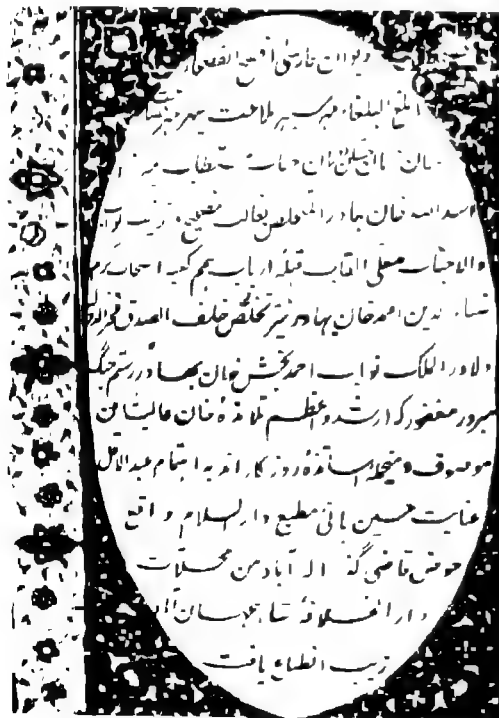 دیوان فارسی افصح الفصحا
ابلغ البلغاء مہر سپہر بلاغت سپہر
خان
اسد اللہ خان بہادر المتخلص بغالب تصحیح و ترتیب نواب
والا جناب معلی القاب قبلہ ارباب ہمم کعبہ اصحاب کرم
ضیاء الدین احمد خان بہادر نیر تخلص خلف الصدق فخر الدولہ
دلاور الملک نواب احمد بخش خان بہادر رستم جنگ
مبرور مغفور کہ ارشد و اعظم تلامذۂ خان عالیشان
موصوف و منجملہ اساتذۂ روزگار اند بہ اہتمام عبد الاقل
عنایت حسین بانی مطبع دار السلام واقع
حوض قاضی من محلات
دار الخلافۂ شاہجہان آباد
زیب انطباع یافت